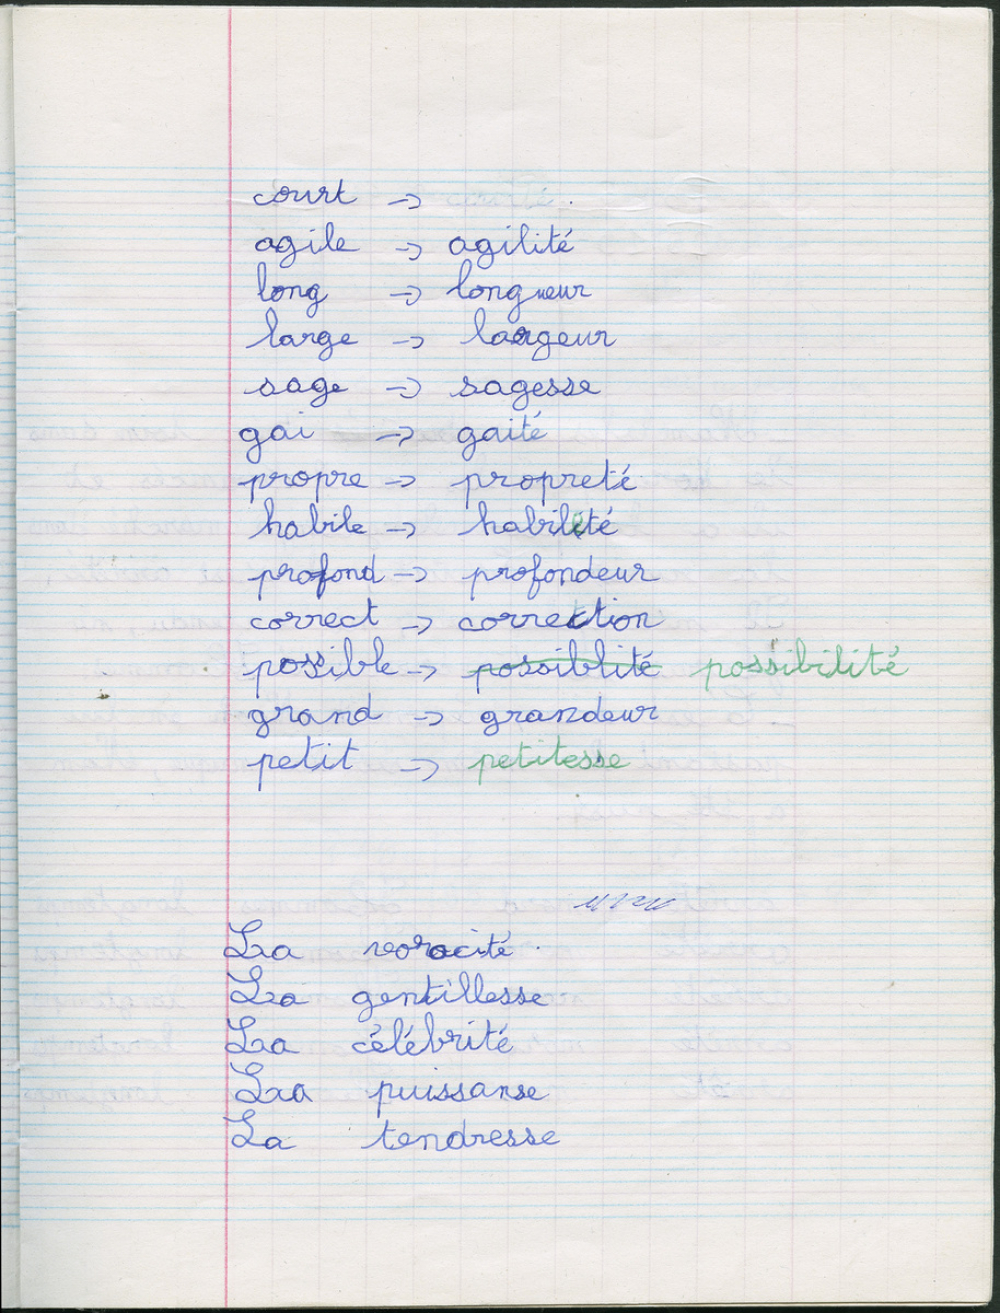 court →
agile → agilité
long → longueur
large → largeur
sage → sagesse
gai → gaité
propre → propreté
habile → habilité
profond → profondeur
correct → correction
possible → possiblité possibilité
grand → grandeur
petit → petitesse
La voracité
La gentillesse
La célébrité
La puissanse
La tendresse